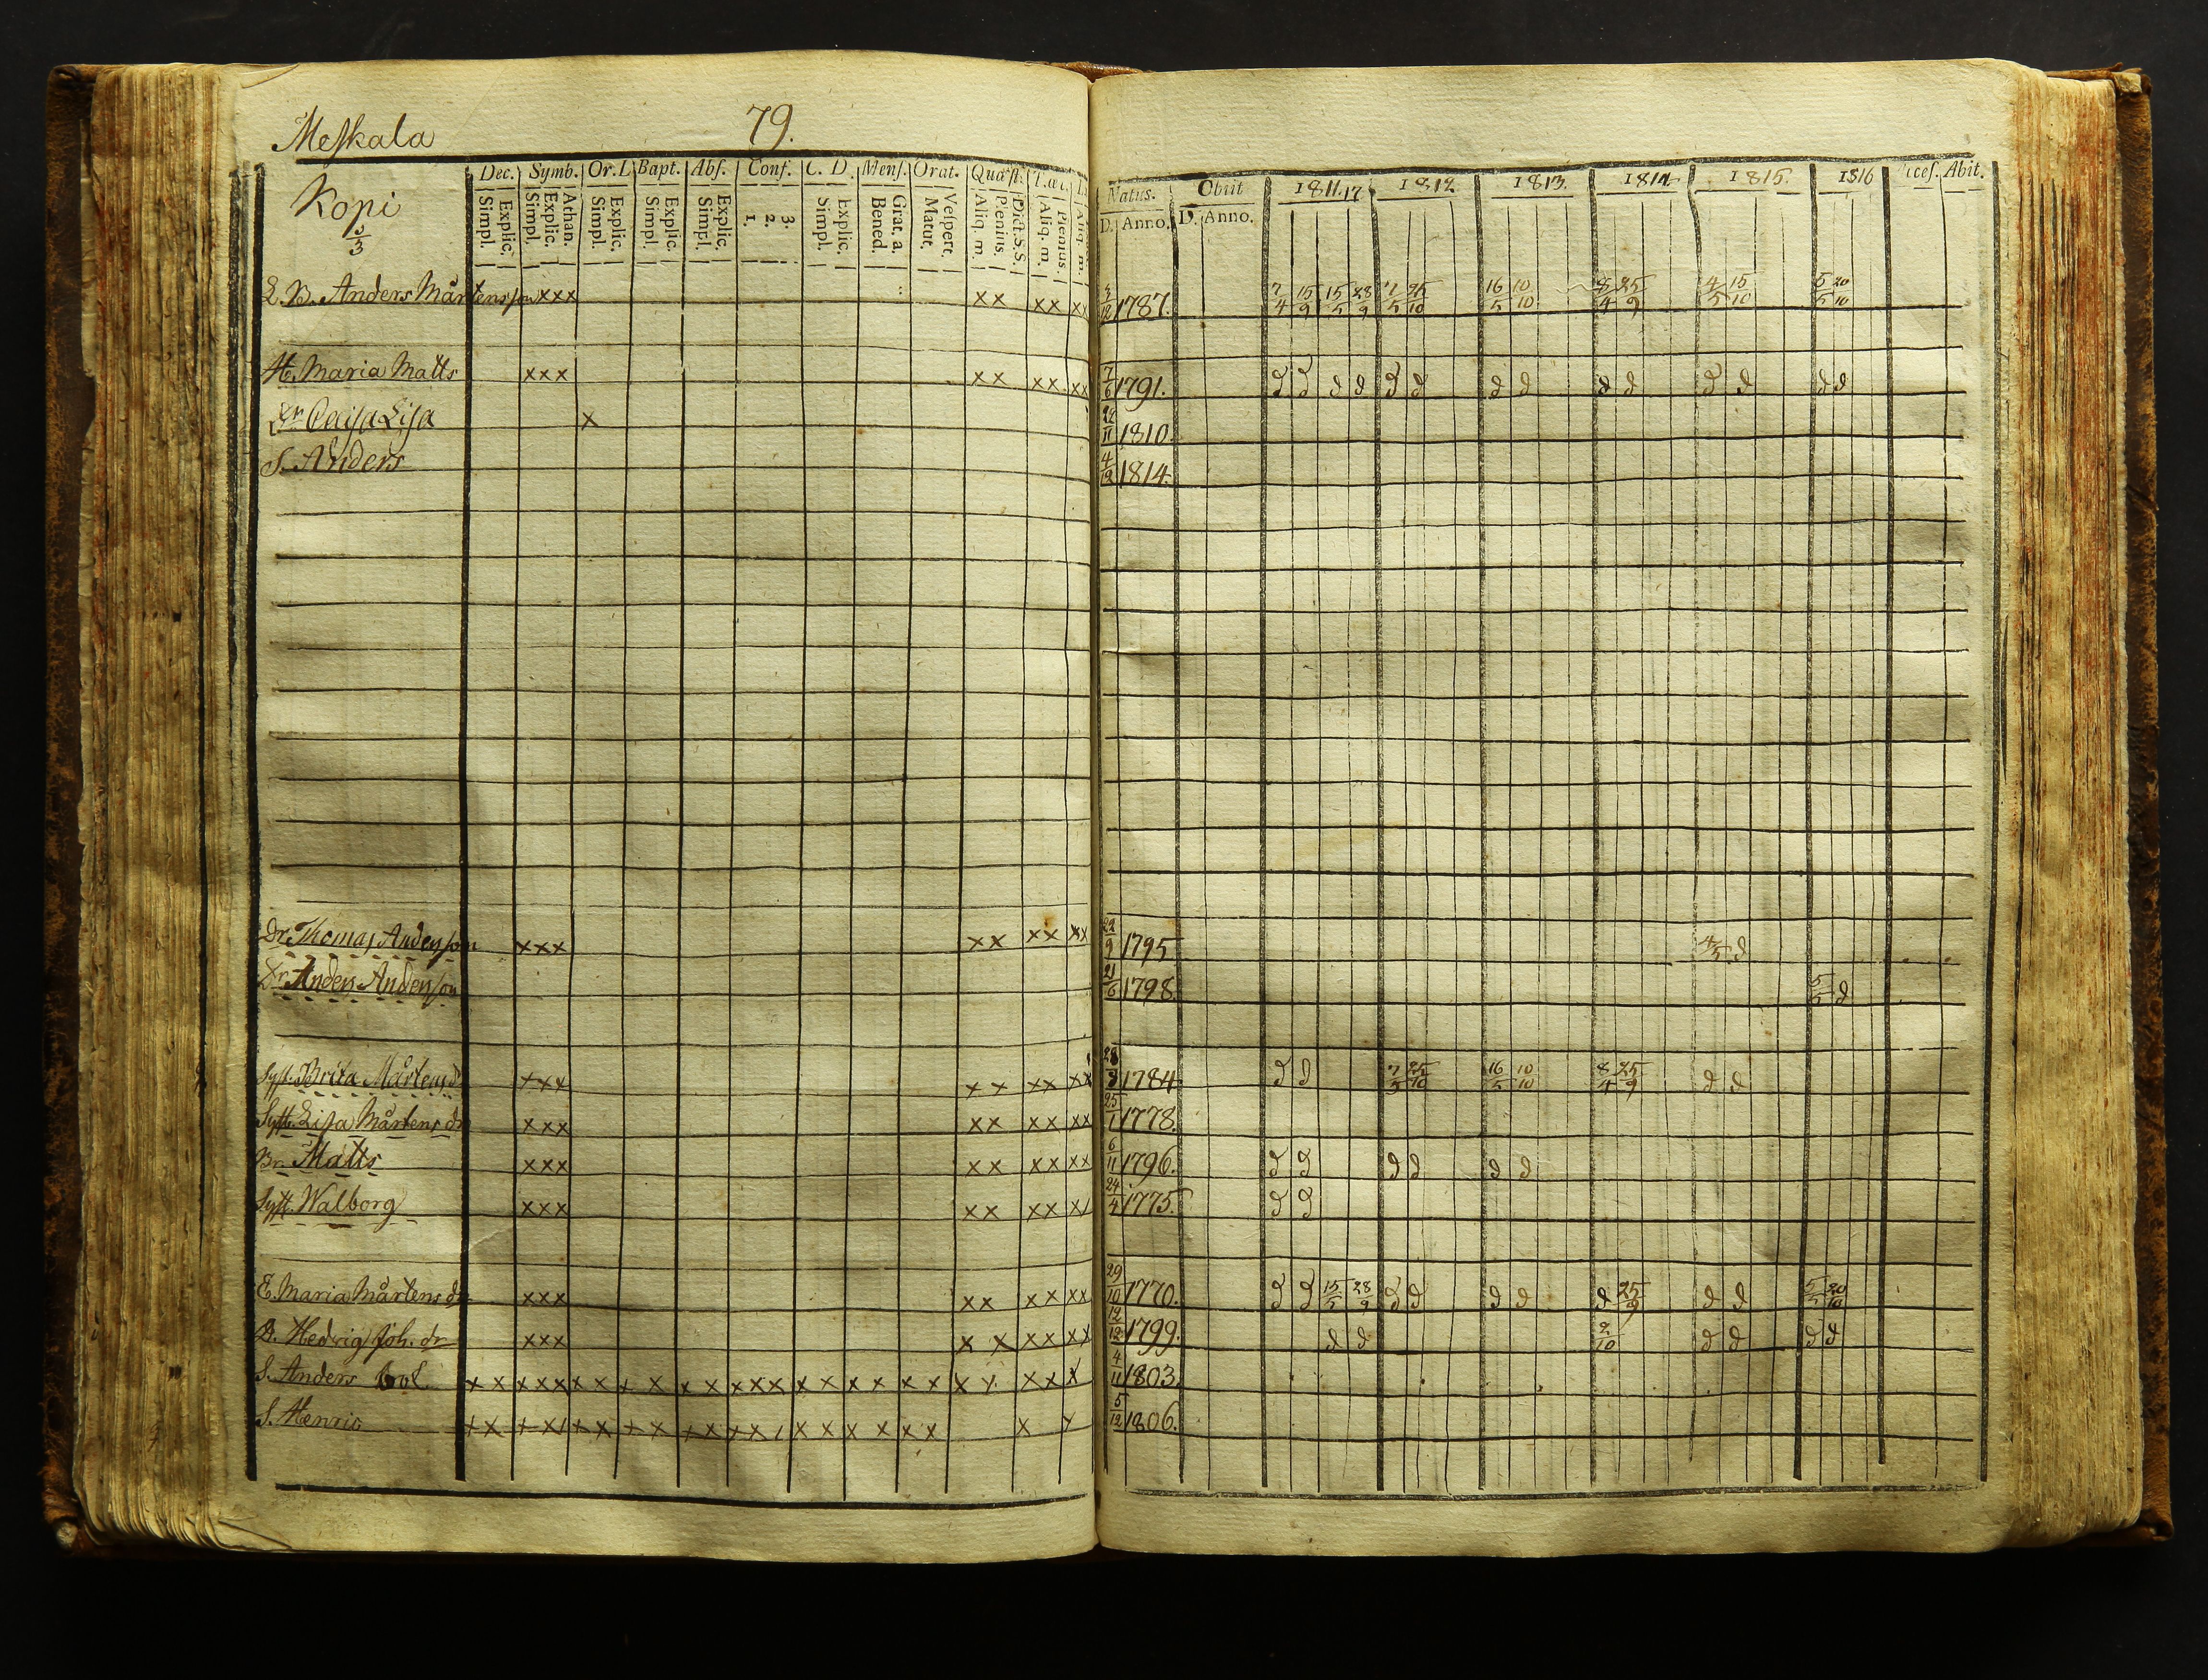 Meskala 79.
Kopi
Dec. Symb. Or. L Bapt. Abs. Conf. C. D. Mens. Orat. Quæst.
Explic. Simpl. Athan. Explic. Simpl. Explic. Simpl. Explic. Simpl. Explic. Simpl. 3. 2. 1. Explic. Simpl. Grat. a. Bened. Vespert. Matut. Dict. S. S. Plenius. Aliq. m. Plenius. Aliq. m. Aliq. m.
Natus. Obiit 1811.17 1812. 1813. 1814 1815. 1816 Abit.
D. Anno. D. Anno.
L. B. Anders Mårtensson xxx xx xx xx 1787. 7/4 15/9 15/5 28/9 7/5 25/10 16/5 10/10 8/4 25/9 4/5 15/10 5/5 20/10
H. Maria Matts xxx xx xx xx 7/6 1791. d d d d d d d d d d d d d d
Dr Caisa Lisa x 1810.
S. Anders 4/12 1814.
Dr. Thomas Andersson xxx xx xx xx 22/9 1795 4/5 d
Dr. Anders Andersson 21/6 1798. 5/5 d
Syst. Brita Mårtensdr xxx xx xx xx 1784 d d 7/5 25/10 16/5 10/10 8/4 25/9 d d
Syst. Lisa Mårtens dr xxx xx xx xx 25/1 1778.
Br. Matts xxx xx xx xx 6/11 1796. d d d d d d
Syst. Walborg xxx xx xx xx 24/4 1775. d d
E. Maria Mårtens dr xxx xx xx xx 29/10 1770. d d 15/5 28/9 d d d d d 25/9 d d 5/5 20/10
D. Hedvig Joh. dr xxx x x xx xx 12/12 1799. d d 2/10 d d d d
S. Anders x x xxx x x x x x x xxx x x x x x x x x xx x 4/11 1803.
S. Henric x x x x x x x x x x x x x x x x x x x x x x 5/12 1806.